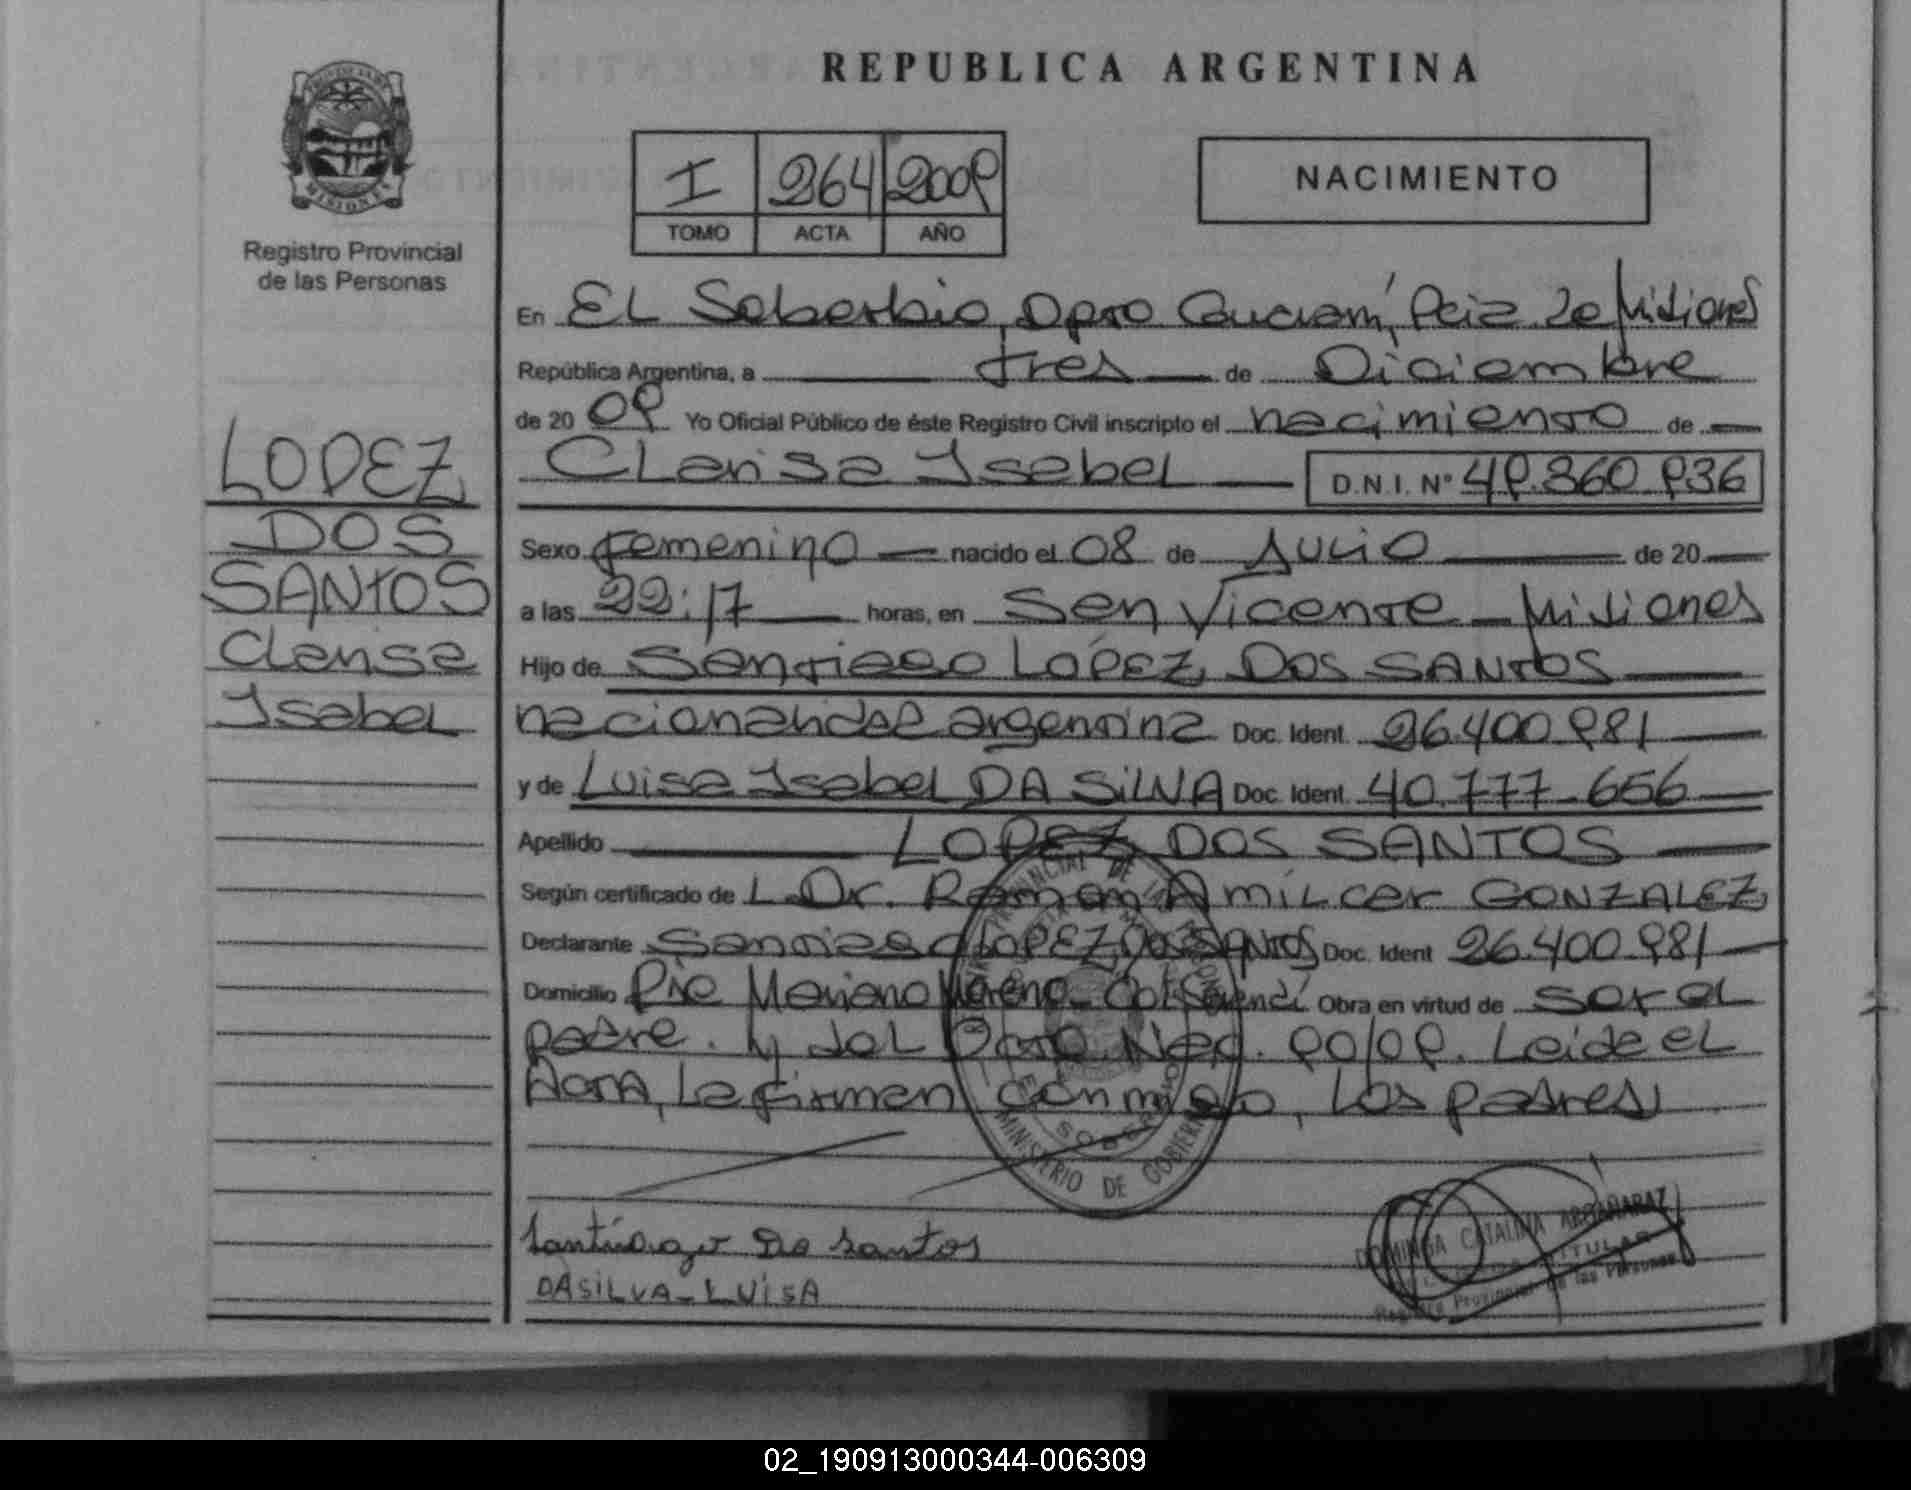 REPUBLICA ARGENTINA
MISIONES
Registro Provincial
de las Personas
I 264 2009
TOMO ACTA AÑO
NACIMIENTO
LOPEZ
DOS
SANTOS
Clarisa
Isabel
En EL Soberbio, Dpto Guaraní, Pcia de Misiones
República Argentina, a tres de Diciembre
de 20 09 Yo Oficial Público de éste Registro Civil inscripto el nacimiento de
Clarisa Isabel D.N.I. Nº 49.860.936
Sexo femenino nacido el 08 de Julio de 20
a las 22:17 horas, en San Vicente - Misiones
Hijo de Santiago LOPEZ DOS SANTOS
nacionalidad argentina Doc. Ident. 26.400.981
y de Luisa Isabel DA SILVA Doc. Ident. 40.777.656
Apellido LOPEZ DOS SANTOS
Según certificado de L. Dr. Ramon Amilcar GONZALEZ
Declarante Santiago LOPEZ DOS SANTOS Doc. Ident 26.400.981
Domicilio Pje Mariano Moreno - Obra en virtud de ser el
padre. y del Nac. 90/09. Leida el
Acta, la firman conmigo, los padres
MINISTERIO DE GOBIERNO
Santiago Do santos
DASILVA - LUISA
DOMINGA CATALINA ARGAÑARAZ
TITULAR
Registro Provincial de las Personas
02_190913000344-006309